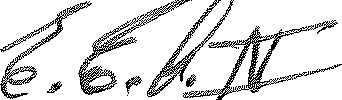 E. E. U. IV